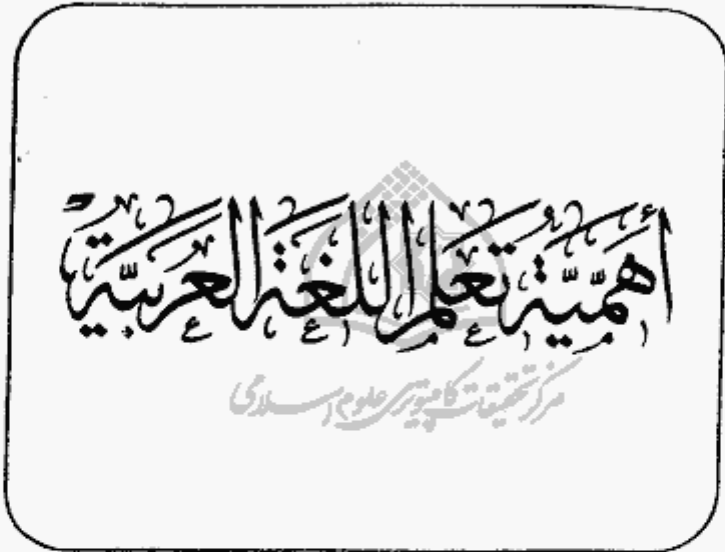 أهمية تعلم اللغة العربية
مركز تحقيقات كامپيوتری علوم اسلامی